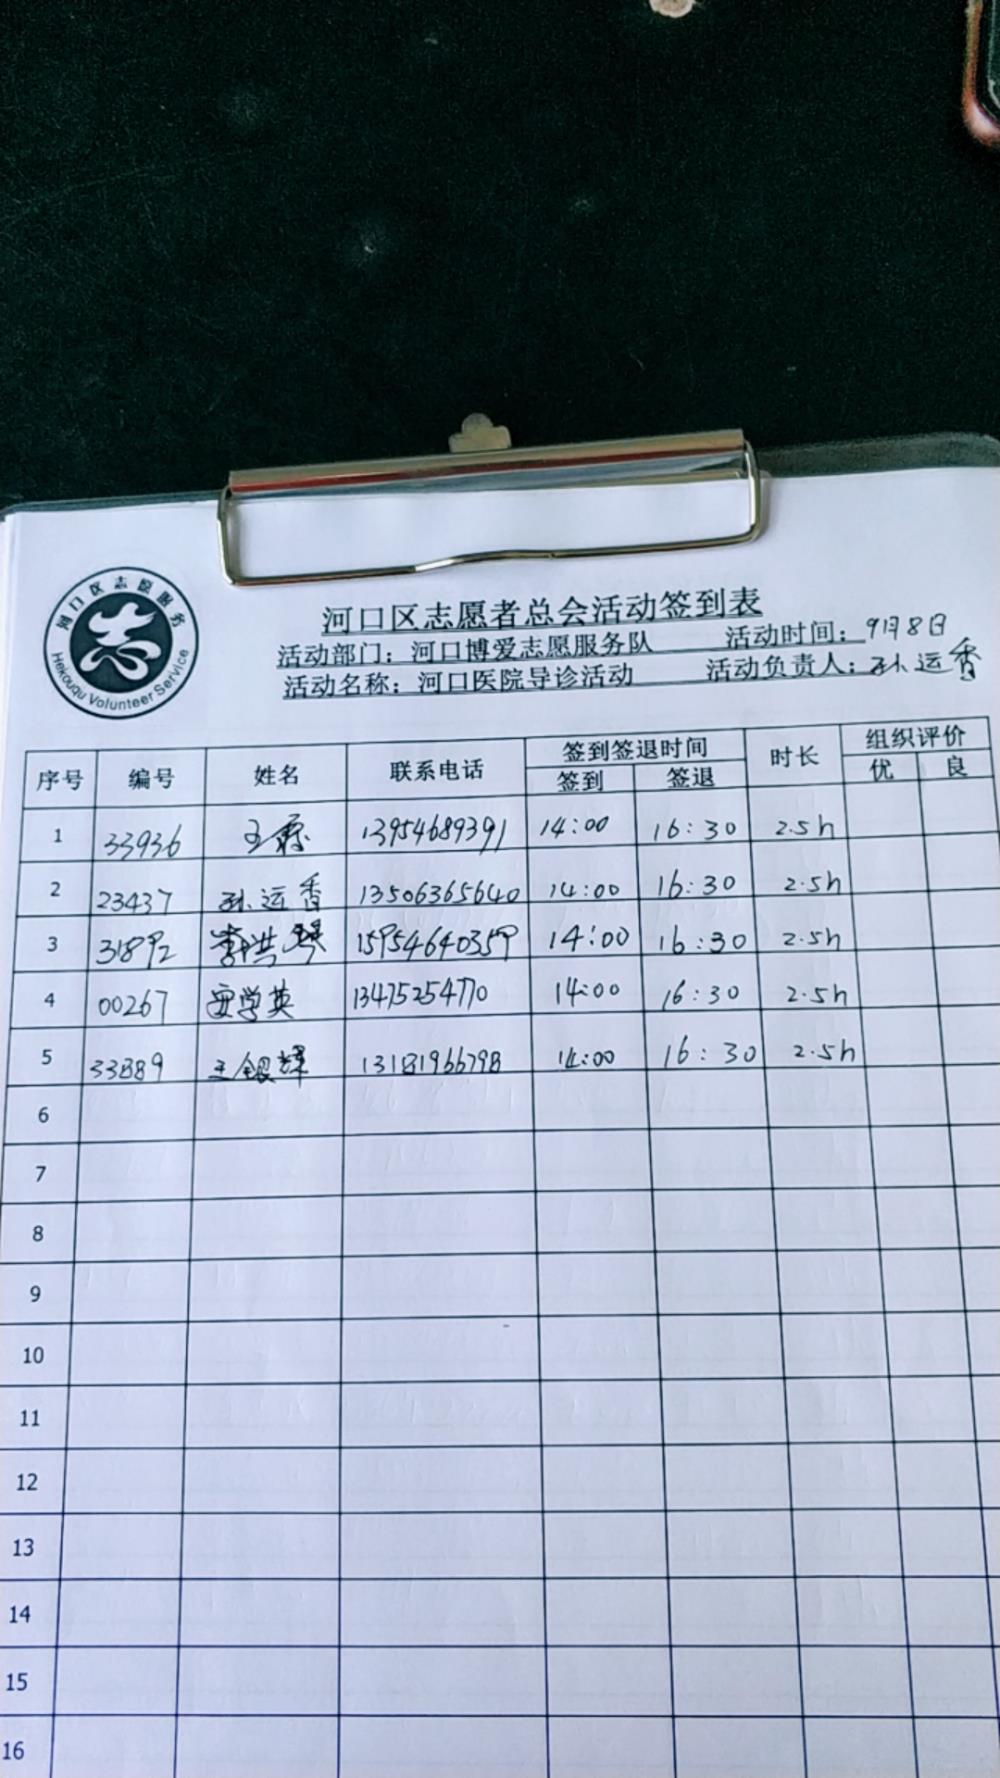 河口区志愿服务
Hekouqu Volunteer Service
志
河口区志愿者总会活动签到表
活动部门：河口博爱志愿服务队 活动时间：9月8日
活动名称：河口医院导诊活动 活动负责人：孙运香
序号 编号 姓名 联系电话 签到签退时间 时长 组织评价
签到 签退 优 良
1 33936 王 13954689391 14:00 16:30 2.5h
2 23437 孙运香 13506365640 14:00 16:30 2.5h
3 31892 李洪琴 15954640359 14:00 16:30 2.5h
4 00267 安学英 13475254770 14:00 16:30 2.5h
5 33889 王银辉 13181966798 14:00 16:30 2.5h
6
7
8
9
10
11
12
13
14
15
16